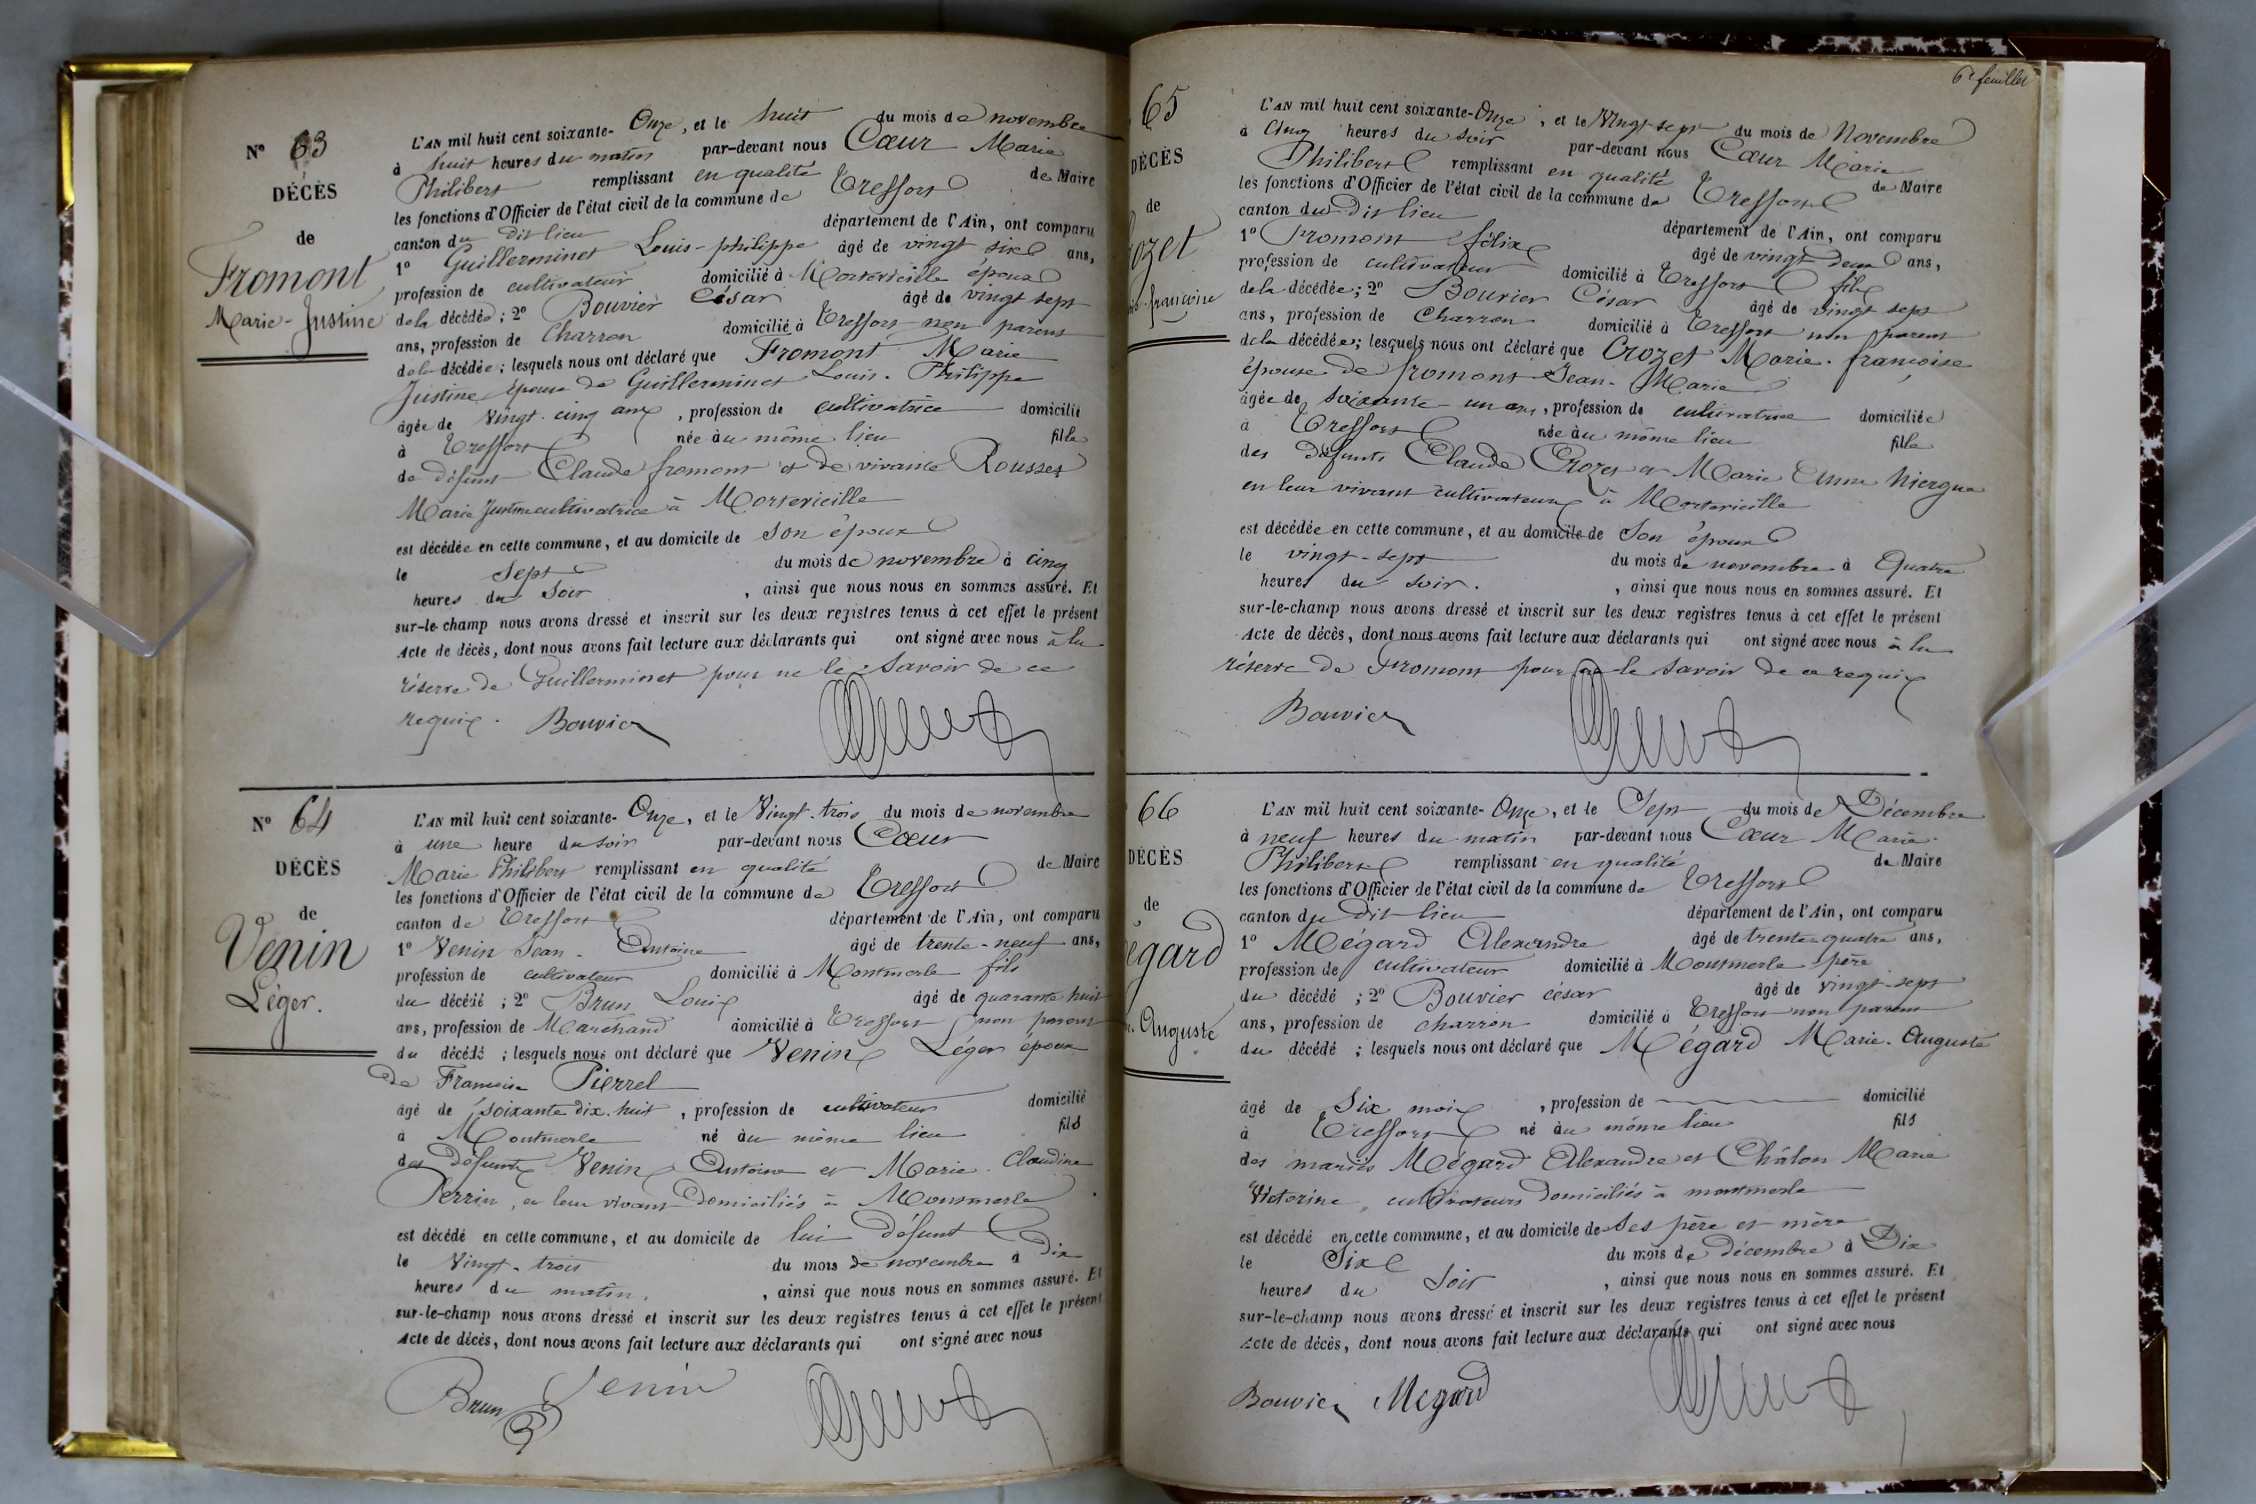 N° 63
DÉCÈS
de
Fromont
Marie-Justine
L'AN mil huit cent soixante-Onze, et le huit du mois de novembre
à huit heures du matin par-devant nous Cœur Marie
Philibert remplissant en qualité de Maire
les fonctions d'Officier de l'état civil de la commune de Treffort
canton du dit lieu département de l'Ain, ont comparu
1° Guillerminet Louis-philippe âgé de vingt six ans,
profession de cultivateur domicilié à Mortevieille époux
de la décédée; 2° Bouvier César âgé de vingt sept
ans, profession de Charron domicilié à Treffort non parent
de la décédée; lesquels nous ont déclaré que Fromont Marie
Justine épouse de Guillerminet Louis-Philippe
âgée de vingt-cinq ans, profession de cultivatrice domicilié
à Treffort née au même lieu fille
de défunt Claude fromont et de vivante Rousset
Marie Justine cultivatrice à Mortevieille
est décédée en cette commune, et au domicile de son époux
le Sept du mois de novembre à cinq
heures du Soir, ainsi que nous nous en sommes assuré. Et
sur-le-champ nous avons dressé et inscrit sur les deux registres tenus à cet effet le présent
Acte de décès, dont nous avons fait lecture aux déclarants qui ont signé avec nous à la
réserve de Guillerminet pour ne le savoir de ce
requis. Bouvier
N° 64
DÉCÈS
de
Venin
Léger.
L'AN mil huit cent soixante-Onze, et le Vingt-trois du mois de novembre
à une heure du soir par-devant nous Cœur
Marie Philibert remplissant en qualité de Maire
les fonctions d'Officier de l'état civil de la commune de Treffort
canton de Treffort département de l'Ain, ont comparu
1° Venin Jean-Antoine âgé de trente-neuf ans,
profession de cultivateur domicilié à Montmerle fils
du décédé; 2° Brun Louis âgé de quarante huit
ans, profession de Marchand domicilié à Treffort non parent
du décédé; lesquels nous ont déclaré que Venin Léger époux
de Francoise Pierrel
âgé de soixante dix-huit, profession de cultivateur domicilié
à Montmerle né au même lieu fils
des Défunts Venin Antoine et Marie-Claudine
Perrin, en leur vivant domiciliés à Montmerle
est décédé en cette commune, et au domicile de lui défunt
le Vingt-trois du mois de novembre à Dix
heures du matin, ainsi que nous nous en sommes assuré. Et
sur-le-champ nous avons dressé et inscrit sur les deux registres tenus à cet effet le présent
Acte de décès, dont nous avons fait lecture aux déclarants qui ont signé avec nous
Brun Venin
6e feuillet
65
DÉCÈS
de
ozet
françoise
L'AN mil huit cent soixante-Onze, et le Vingt-sept du mois de Novembre
à Cinq heures du soir par-devant nous Cœur Marie
Philibert remplissant en qualité de Maire
les fonctions d'Officier de l'état civil de la commune de Treffort
canton du Dit lieu département de l'Ain, ont comparu
1° Fromont félix âgé de vingt-deux ans,
profession de cultivateur domicilié à Treffort fils
de la décédée; 2° Bouvier César âgé de vingt sept
ans, profession de Charron domicilié à Treffort non parent
de la décédée; lesquels nous ont déclaré que Crozet Marie-francoise
épouse de fromont Jean-Marie
âgée de soixante-un ans, profession de cultivatrice domiciliée
à Treffort née au même lieu fille
des défunts Claude Crozet et Marie Anne
en leur vivant cultivateurs à Mortevieille
est décédée en cette commune, et au domicile de Son époux
le vingt-sept du mois de novembre à Quatre
heures du soir., ainsi que nous nous en sommes assuré. Et
sur-le-champ nous avons dressé et inscrit sur les deux registres tenus à cet effet le présent
Acte de décès, dont nous avons fait lecture aux déclarants qui ont signé avec nous à la
réserve de Fromont pour ne le savoir de ce requis
Bouvier
66
DÉCÈS
de
égard
Auguste
L'AN mil huit cent soixante-Onze, et le Sept du mois de Décembre
à neuf heures du matin par-devant nous Cœur Marie
Philibert remplissant en qualité de Maire
les fonctions d'Officier de l'état civil de la commune de Treffort
canton du Dit lieu département de l'Ain, ont comparu
1° Mégard Alexandre âgé de trente-quatre ans,
profession de cultivateur domicilié à Montmerle père
du décédé; 2° Bouvier césar âgé de vingt-sept
ans, profession de charron domicilié à Treffort non parent
du décédé; lesquels nous ont déclaré que Mégard Marie-Auguste
âgé de Six mois, profession de domicilié
à Treffort né au même lieu fils
des mariés Mégard Alexandre et Châlon Marie
Victorine, cultivateurs domiciliés à montmerle
est décédé en cette commune, et au domicile de ses père et mère
le Six du mois de décembre à Dix
heures du Soir, ainsi que nous nous en sommes assuré. Et
sur-le-champ nous avons dressé et inscrit sur les deux registres tenus à cet effet le présent
Acte de décès, dont nous avons fait lecture aux déclarants qui ont signé avec nous
Bouvier Mégard